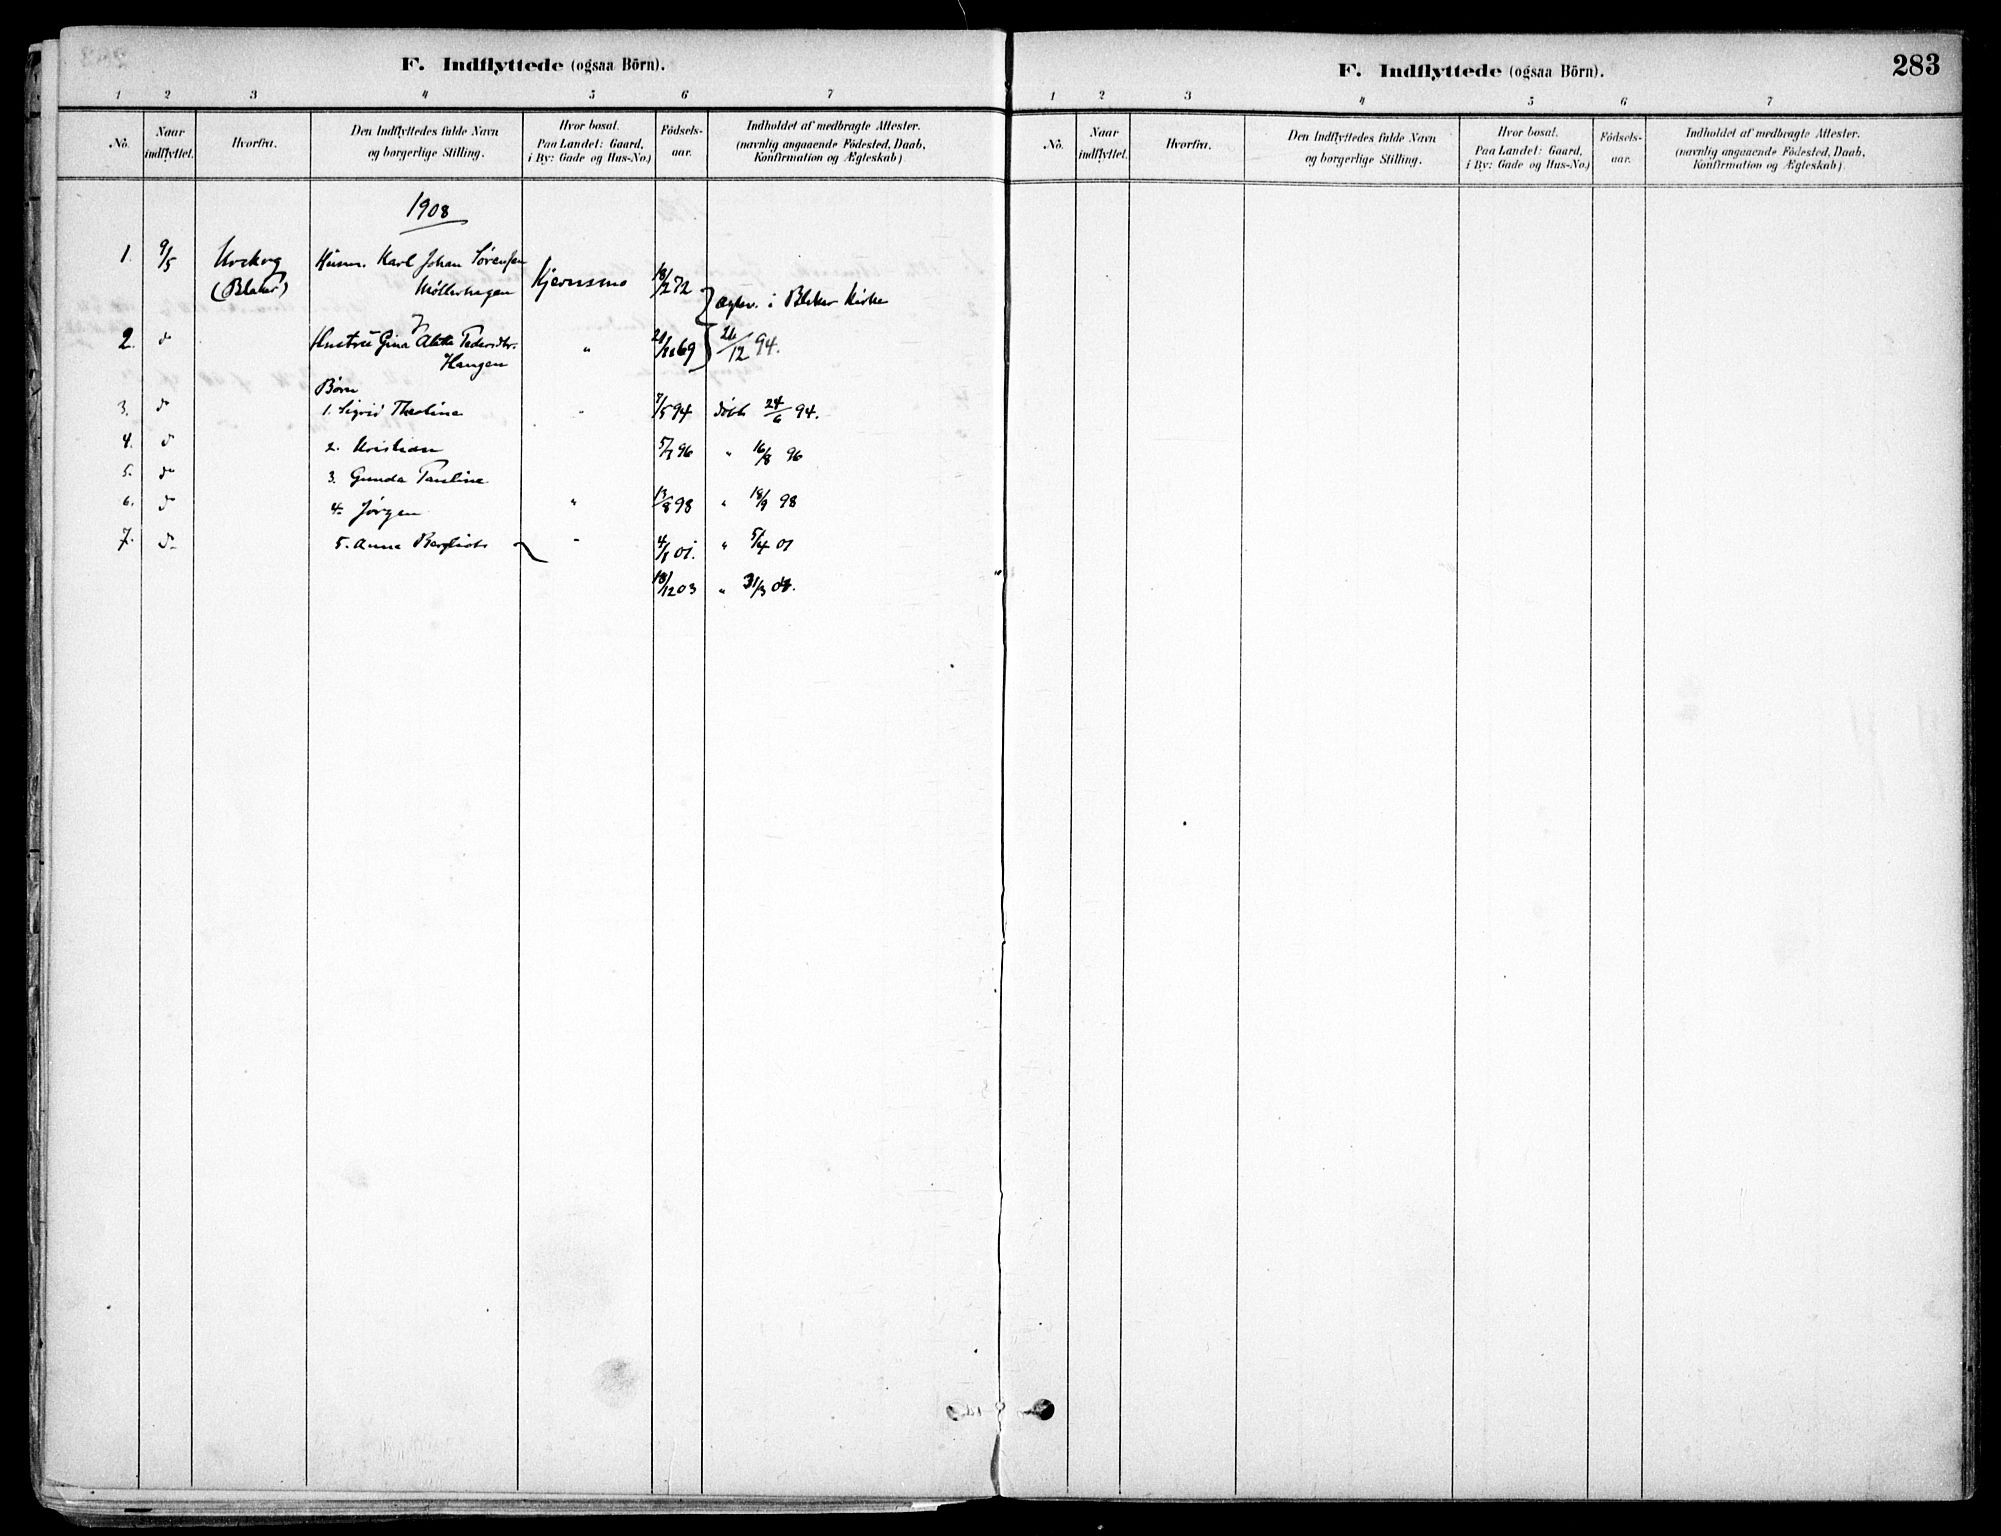 F. Indflyttede (ogsaa Börn).
1 2 3 4 5 6 7
No. Naar indflyttet. Hvorfra. Den Indflyttedes fulde Navn og borgerlige Stilling. Hvor bosat. Paa Landet: Gaard, i By: Gade og Hus-No.) Födsels-aar. Indholdet af medbragte Attester. (navnlig angaaende Födested, Daab, Konfirmation og Ægteskab)
1908
1. 9/5 Karl Johan Sørensen
(Blaker) Møllerhagen Kjernsmo 18/2 72
i Kirke
2. do Hustru Gina " 69 26/12 94.
Haugen
Børn
3. do 1. Sigrid " 94 døbt 24/6 94.
4. do 2. Kristian 96 " 16/8 96
5. do 3. Gunda Pauline
6. do 4. Jørgen " 13/8 98 " 18/9 98
7. do 5. Anna " 01. " 5/4 01
18/12 03 " 31/3 04.
F. Indflyttede (ogsaa Börn).
283
1 2 3 4 5 6 7
No. Naar indflyttet. Hvorfra. Den Indflyttedes fulde Navn og borgerlige Stilling. Hvor bosat. Paa Landet: Gaard, i By: Gade og Hus-No.) Födsels-aar. Indholdet af medbragte Attester. (navnlig angaaende Födested, Daab, Konfirmation og Ægteskab)